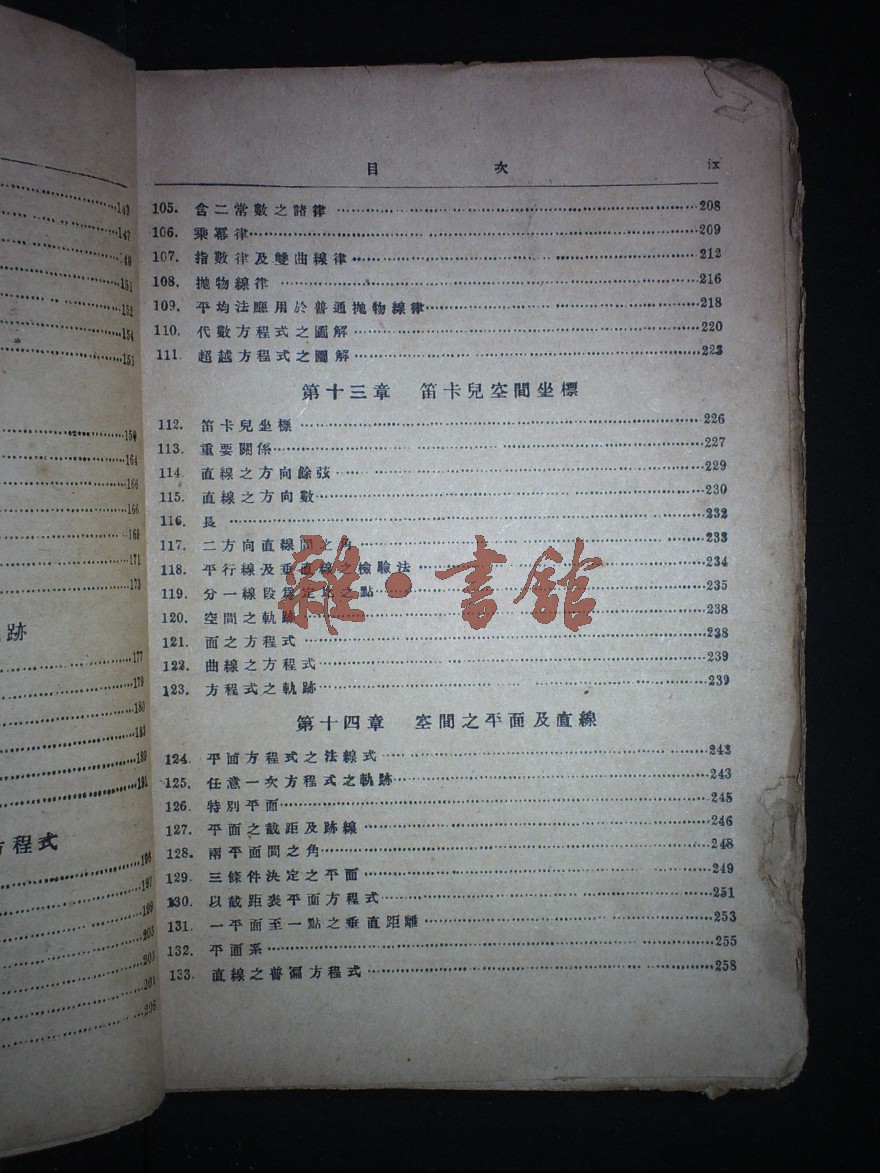 143
147
149
151
152
154
155
159
164
166
166
169
171
173
跡
177
179
180
183
189
191
方程式
196
197
199
203
203
204
206
目 次 ix
105. 含二常數之諸律 208
106. 乘冪律 209
107. 指數律及雙曲線律 212
108. 拋物線律 216
109. 平均法應用於普通拋物線律 218
110. 代數方程式之圖解 220
111. 超越方程式之圖解 223
第十三章 笛卡兒空間坐標
112. 笛卡兒坐標 226
113. 重要關係 227
114. 直線之方向餘弦 229
115. 直線之方向數 230
116. 長 232
117. 二方向直線間之角 233
118. 平行線及垂直線之檢驗法 234
119. 分一線段爲定比之點 235
120. 空間之軌跡 238
121. 面之方程式 238
122. 曲線之方程式 239
123. 方程式之軌跡 239
第十四章 空間之平面及直線
124. 平面方程式之法線式 243
125. 任意一次方程式之軌跡 243
126. 特別平面 245
127. 平面之截距及跡線 246
128. 兩平面間之角 248
129. 三條件決定之平面 249
130. 以截距表平面方程式 251
131. 一平面至一點之垂直距離 253
132. 平面系 255
133. 直線之普遍方程式 258
雜·書館